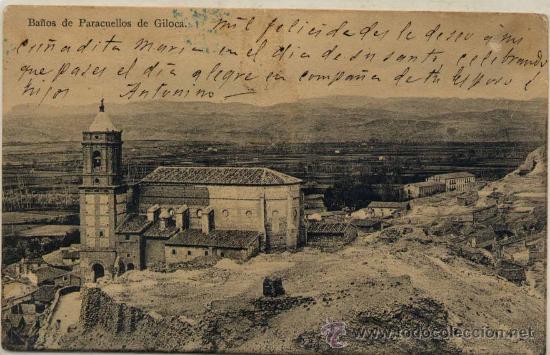 Baños de Paracuellos de Giloca.
mil felicidades le deseo a mi
cuñadita Maria en el dia de su santo, celebrando
que pases el dia alegre en compaña de tu esposo e
hijos Antonino
todocoleccion.net